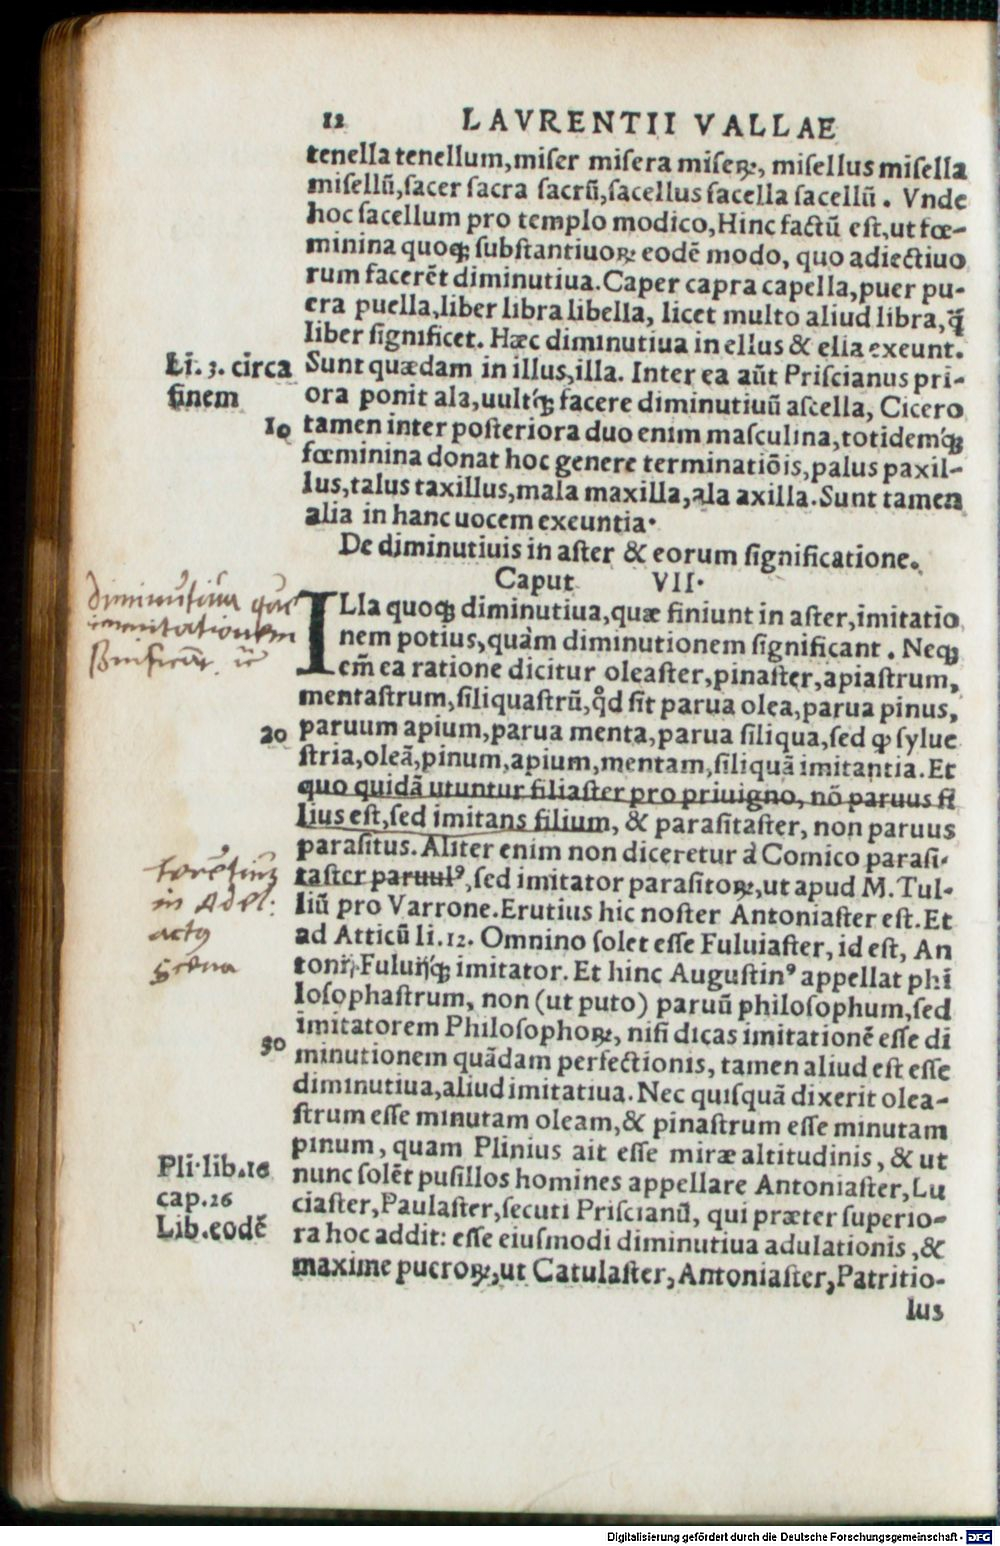 12 LAVRENTII VALLAE
tenella tenellum, miser misera miseꝝ, misellus misella
misellū, sacer sacra sacrū, sacellus sacella sacellū. Vnde
hoc sacellum pro templo modico, Hinc factū est, ut fœ-
minina quoqꝫ substantiuoꝝ eodē modo, quo adiectiuo
rum facerēt diminutiua. Caper capra capella, puer pu-
era puella, liber libra libella, licet multo aliud libra, q̄
liber significet. Hæc diminutiua in ellus & ella exeunt.
Li. 3. circa
finem
Sunt quædam in illus, illa. Inter ea aūt Priscianus pri-
ora ponit ala, uultq́ꝫ facere diminutiuū ascella, Cicero
10 tamen inter posteriora duo enim masculina, totidemq́ꝫ
fœminina donat hoc genere terminatiōis, palus paxil-
lus, talus taxillus, mala maxilla, ala axilla. Sunt tamen
alia in hanc uocem exeuntia.
De diminutiuis in aster & eorum significatione.
Caput VII.
diminutiua que
imitationem
ILla quoqꝫ diminutiua, quæ finiunt in aster, imitatio
nem potius, quàm diminutionem significant. Neqꝫ
em̄ ea ratione dicitur oleaster, pinaster, apiastrum,
mentastrum, siliquastrū, qd̊ sit parua olea, parua pinus,
20 paruum apium, parua menta, parua siliqua, sed ꝙ sylue
stria, oleā, pinum, apium, mentam, siliquā imitantia. Et
quo quidā utuntur filiaster pro priuigno, nō paruus fi
lius est, sed imitans filium, & parasitaster, non paruus
parasitus. Aliter enim non diceretur à Comico parasi-
Terētius
in Adel:
actꝰ
scena
taster paruulꝰ, sed imitator parasitoꝝ, ut apud M. Tul-
liū pro Varrone. Erutius hic noster Antoniaster est. Et
ad Atticū li. 12. Omnino solet esse Fuluiaster, id est, An
tonij, Fuluijq́ꝫ imitator. Et hinc Augustinꝰ appellat phi
losophastrum, non (ut puto) paruū philosophum, sed
imitatorem Philosophoꝝ, nisi dicas imitationē esse di
30 minutionem quādam perfectionis, tamen aliud est esse
diminutiua, aliud imitatiua. Nec quisquā dixerit olea-
strum esse minutam oleam, & pinastrum esse minutam
pinum, quam Plinius ait esse miræ altitudinis, & ut
Pli. lib. 16
cap. 26
Lib. eodē
nunc solēt pusillos homines appellare Antoniaster, Lu
ciaster, Paulaster, secuti Priscianū, qui præter superio-
ra hoc addit: esse eiusmodi diminutiua adulationis, &
maxime pueroꝝ, ut Catulaster, Antoniaster, Patritio-
lus
Digitalisierung gefördert durch die Deutsche Forschungsgemeinschaft - DFG